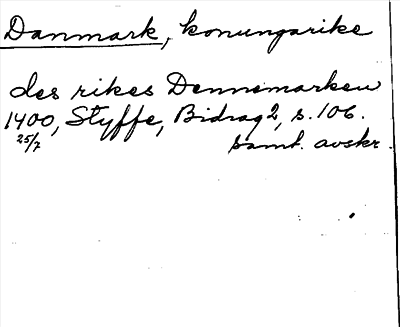 Danmark, konungarike
des rikes Dennemarken
1400, Styffe, Bidrag 2, s. 106.
25/7 samt. avskr.